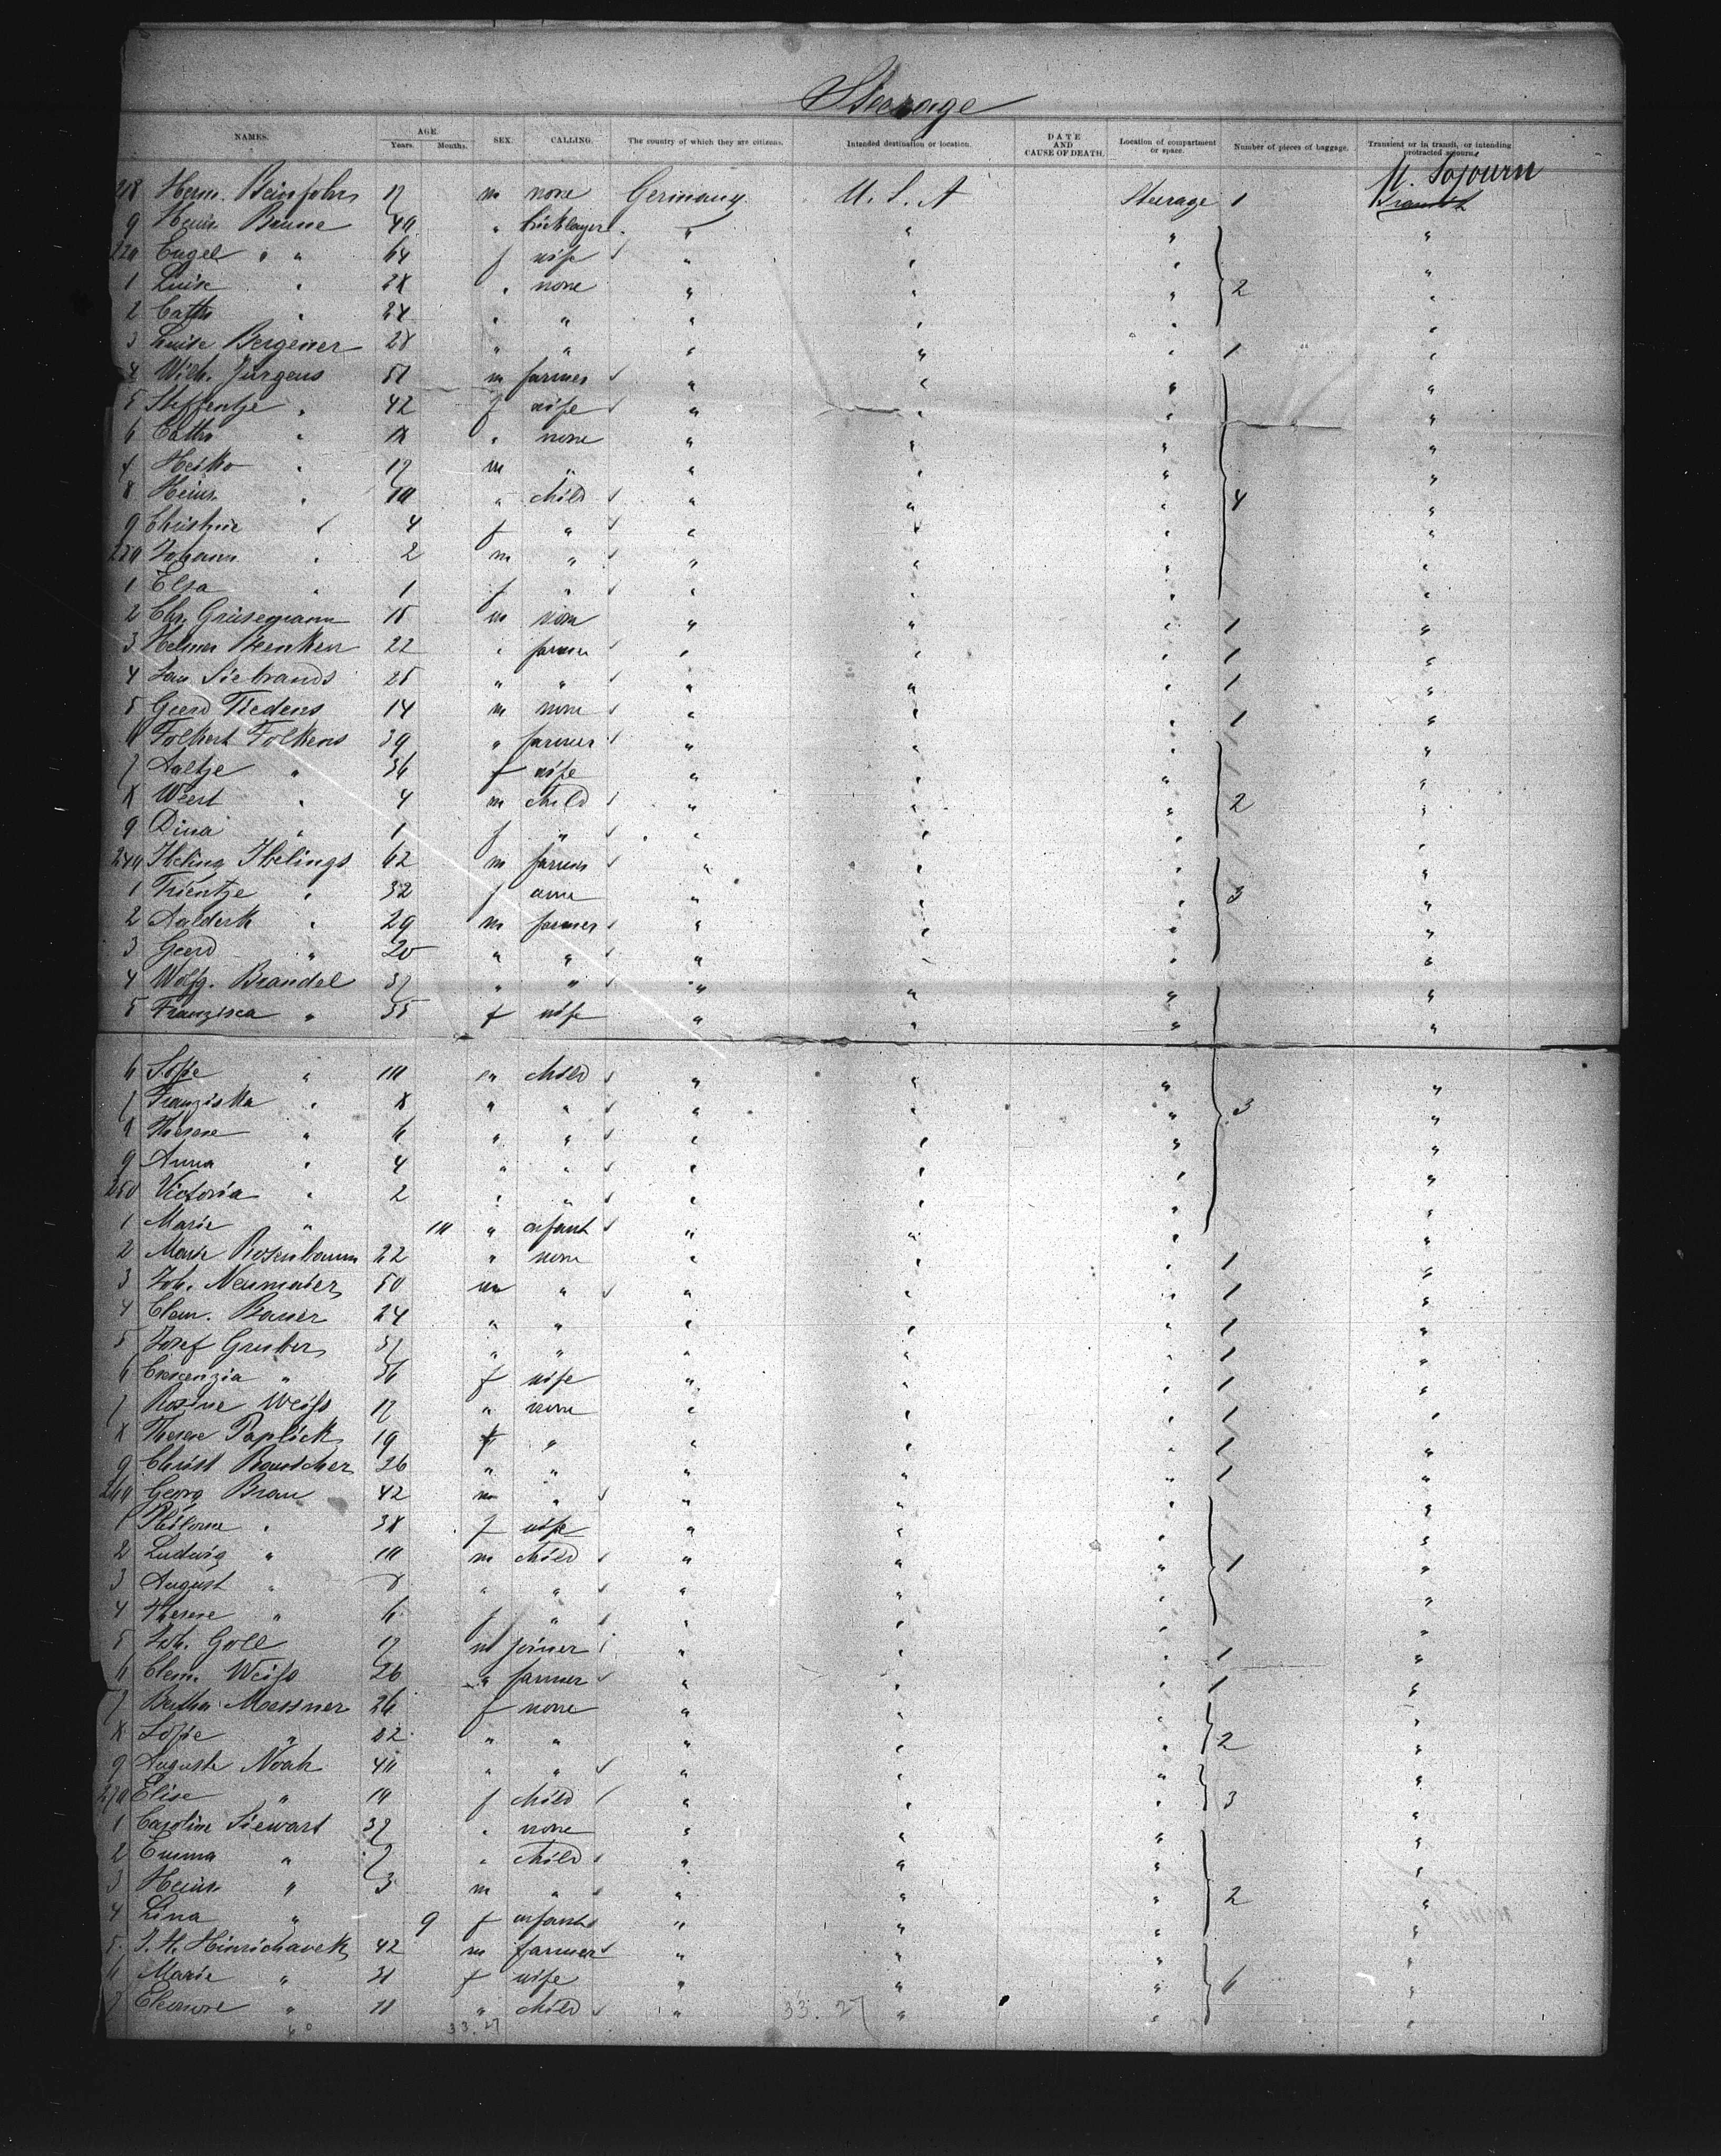 Steerage
NAMES. AGE. Years. Months. SEX. CALLING. The country of which they are citizens. Intended destination or location. DATE AND CAUSE OF DEATH. Location of compartment or space. Number of pieces of baggage. Transient or in transit, or intending protracted sojourn.
U. Sojourn
218 Herm. 17 m none Germany U. S. A Steerage 1 Transit
9 Heinr. Brune " bricklayer " " " "
220 Engel " " 64 f wife " " " "
1 Luise " 28 " none " " " 2 "
2 Cath. " 24 " " " " " "
3 Luise Bergener 28 " " " " " 1 "
4 Wilh. Jürgens 51 m farmer " " " "
5 Steffentje " 42 f wife " " " "
6 Cath. " 18 " none " " " "
7 Heiko " 17 m " " " " "
8 Heinr. " 10 " child " " " 4 "
9 Christine " 4 f " " " " "
230 Johann " 2 m " " " " "
1 Elsa " 1 f " " " " "
2 Chr. Grüsemann 15 m none " " " 1 "
3 Helmer Beenken 22 " farmer " " " 1 "
4 Jan Siebrands 25 " " " " " 1 "
5 Geerd Tiedens 14 m none " " " 1 "
6 Folkert Folkens 39 " farmer " " " "
7 Aaltje " 36 f wife " " " "
8 Weert " 4 m child " " " 2 "
9 Dina " 1 f " " " " "
240 Ibeling Ibelings 62 m farmer " " " "
1 Trientje " 32 f " " " 3 "
2 Aalderk " 29 m farmer " " " "
3 Geerd " 20 " " " " " "
4 Wolfg. Brandel 37 " " " " " "
5 Franziska " 35 f wife " " " "
6 Sofie " 10 " child " " " "
7 Franziska " 8 " " " " " 3 "
8 Therese " 6 " " " " " "
9 Anna " 4 " " " " " "
250 Victoria " 2 " " " " " "
1 Marie " 10 " infant " " " "
2 Marie Rosenbaum 22 " none " " " 1 "
3 Joh. Neumaier 50 m " " " " 1 "
4 Clem. Bauer 24 " " " " " 1 "
5 Josef Gruber 37 " " " " " 1 "
6 Crescenzia " 36 f wife " " " 1 "
7 Rosine Weiss 17 " none " " " 1 "
8 Therese Paplick 19 f " " " " 1 "
9 Christ Rauscher 26 " " " " " 1 "
260 Georg Brau 42 m " " " " "
1 Philome " 38 f wife " " " "
2 Ludwig " 10 m child " " " 1 "
3 August " 8 " " " " " "
4 Therese " 6 f " " " " "
5 Joh. Goll 17 m joiner " " " 1 "
6 Clem. Weiss 26 " farmer " " " 1 "
7 Bertha Messner 26 f none " " " "
8 Sofie " " " " " " 2 "
9 Auguste Noah 40 " " " " " "
270 Elise " 10 f child " " " 3 "
1 Caroline Siewart 37 " none " " " "
2 Emma " 7 " child " " " "
3 Heinr. " 3 m " " " " 2 "
4 Lina " 9 f infant " " " "
5 J. H. 42 m farmer " " " "
6 Marie " 31 f wife " " " 6 "
7 Eleonore " 11 " child " " " "
33. 27
33. 27